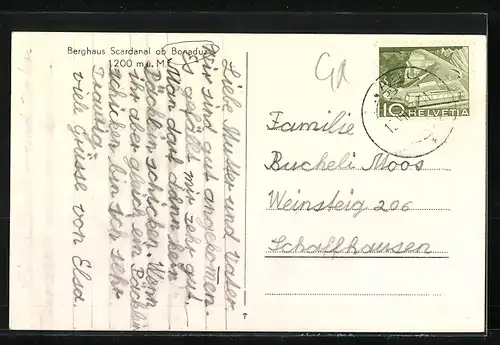 Berghaus Scardanal ob Bonaduz
1200 m ü. M.
Liebe Mutter und Vater
Wir sind gut angkomen.
Es gefällt mir sehr gut.
Man darf dann kein
Päcklein schicken. Wenn
ihr aber gleich ein Päcklein
schicken bin ich sehr
viele Grüsse von Elsa.
Familie
Bucheli Moos
Weinsteig 206
Schaffhausen
10 HELVETIA